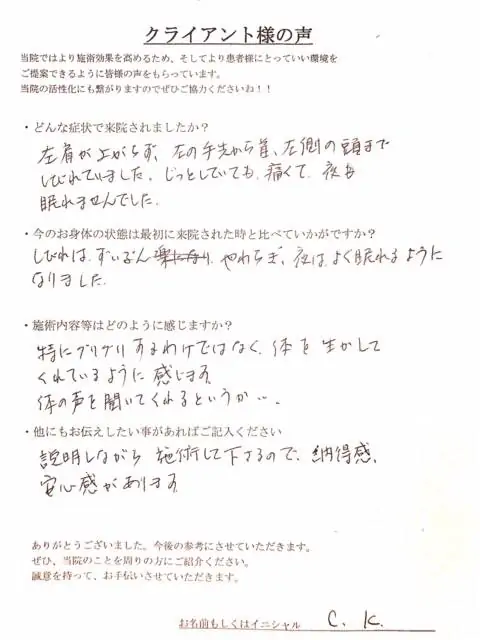 クライアント様の声
当院ではより施術効果を高めるため、そしてより患者様にとっていい環境を
ご提案できるように皆様の声をもらっています。
当院の活性化にも繋がりますのでぜひご協力くださいね！！
・どんな症状で来院されましたか？
左肩が上がらず、左の手先から首、左側の頭まで
しびれていました。じっとしていても、痛くて、夜も
眠れませんでした。
・今のお身体の状態は最初に来院された時と比べていかがですか？
しびれは、ずいぶん楽になり、やわらぎ、夜は、よく眠れるように
なりました。
・施術内容等はどのように感じますか？
特にグリグリするわけではなく、体を生かして
くれているように感じます。
体の声を聞いてくれるというか…。
・他にもお伝えしたい事があればご記入ください
説明しながら施術して下さるので、納得感、
安心感があります。
ありがとうございました。今後の参考にさせていただきます。
ぜひ、当院のことを周りの方にご紹介ください。
誠意を持って、お手伝いさせていただきます。
お名前もしくはイニシャル C. K.